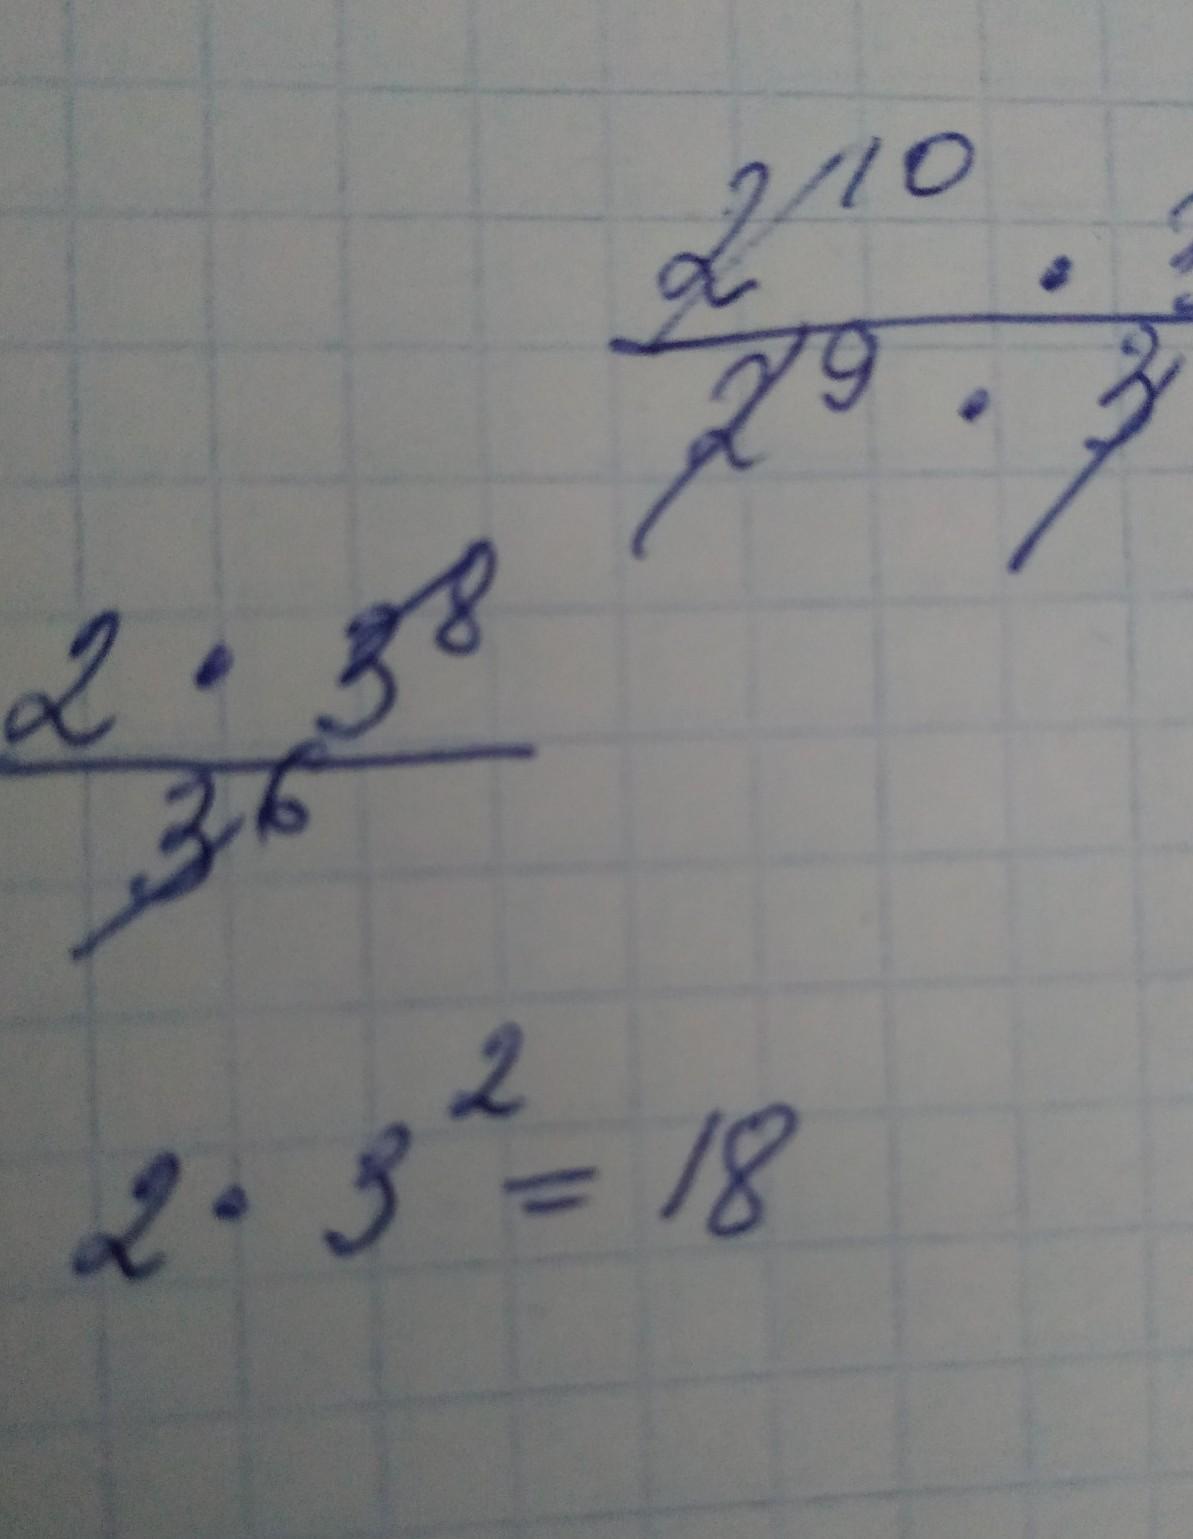 2¹⁰ · 3
2⁹ · 3
2 · 3⁸
3⁶
2 · 3² = 18